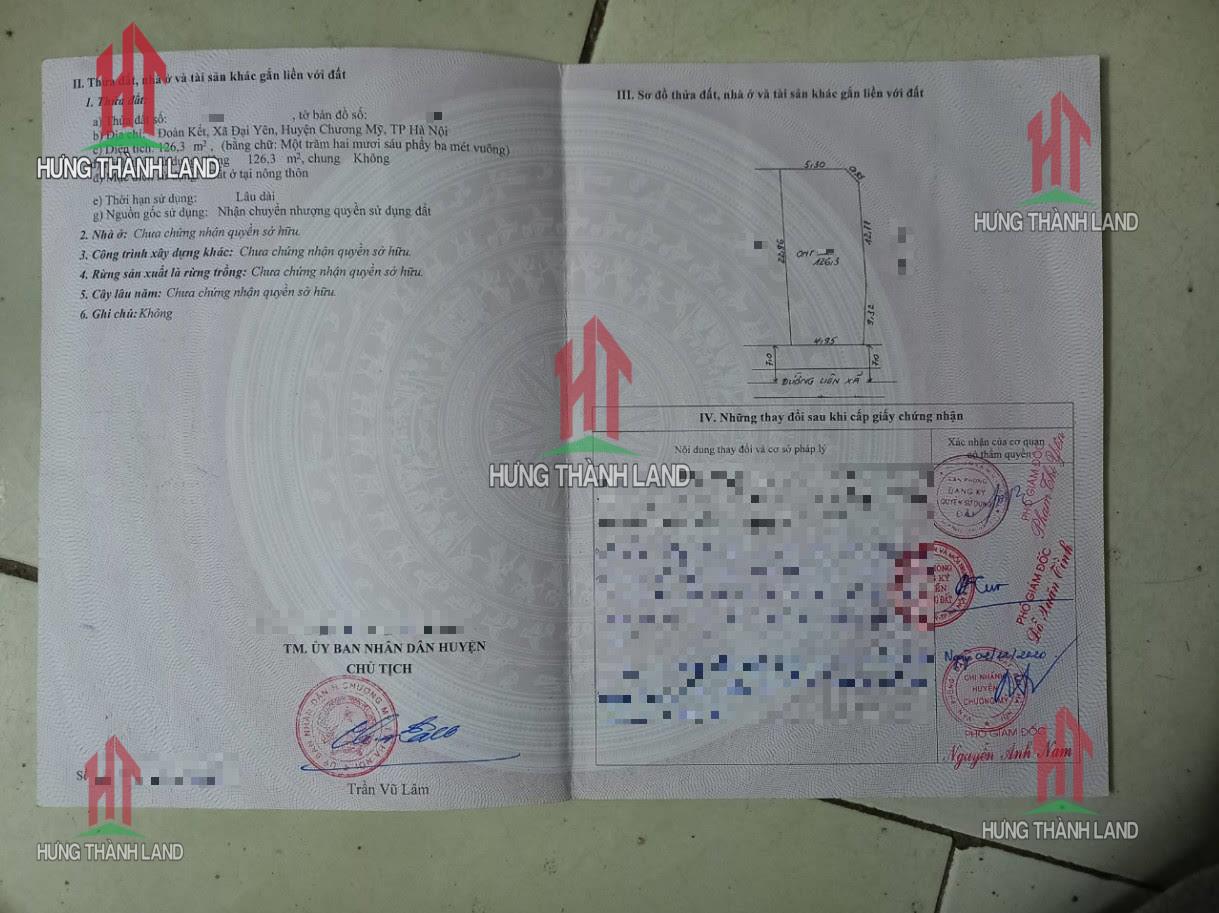 II. Thửa đất, nhà ở và tài sản khác gắn liền với đất
1. Thửa đất:
a) Thửa đất số: , tờ bản đồ số:
b) Địa chỉ: Đoàn Kết, Xã Đại Yên, Huyện Chương Mỹ, TP Hà Nội
c) Diện tích: 126,3 m², (bằng chữ: Một trăm hai mươi sáu phẩy ba mét vuông)
126,3 m², chung Không
ất ở tại nông thôn
e) Thời hạn sử dụng: Lâu dài
g) Nguồn gốc sử dụng: Nhận chuyển nhượng quyền sử dụng đất
2. Nhà ở: Chưa chứng nhận quyền sở hữu.
3. Công trình xây dựng khác: Chưa chứng nhận quyền sở hữu.
4. Rừng sản xuất là rừng trồng: Chưa chứng nhận quyền sở hữu.
5. Cây lâu năm: Chưa chứng nhận quyền sở hữu.
6. Ghi chú: Không
TM. ỦY BAN NHÂN DÂN HUYỆN
CHỦ TỊCH
Trần Vũ Lâm
III. Sơ đồ thửa đất, nhà ở và tài sản khác gắn liền với đất
5,30
22,96
12,17
ONT
126,3
9,32
4,95
7,0
7,0
ĐƯỜNG LIÊN XÃ
IV. Những thay đổi sau khi cấp giấy chứng nhận
Nội dung thay đổi và cơ sở pháp lý
Xác nhận của cơ quan
có thẩm quyền
VĂN PHÒNG
ĐĂNG KÝ
QUYỀN SỬ DỤNG
ĐẤT
PHÓ GIÁM ĐỐC
Phạm Thị Yến
PHÓ GIÁM ĐỐC
Đỗ Xuân Tình
Ngày 02/12/2020
CHI NHÁNH
HUYỆN
CHƯƠNG MỸ
PHÓ GIÁM ĐỐC
Nguyễn Anh Nam
HƯNG THÀNH LAND
HƯNG THÀNH LAND
HƯNG THÀNH LAND
HƯNG THÀNH LAND
HƯNG THÀNH LAND